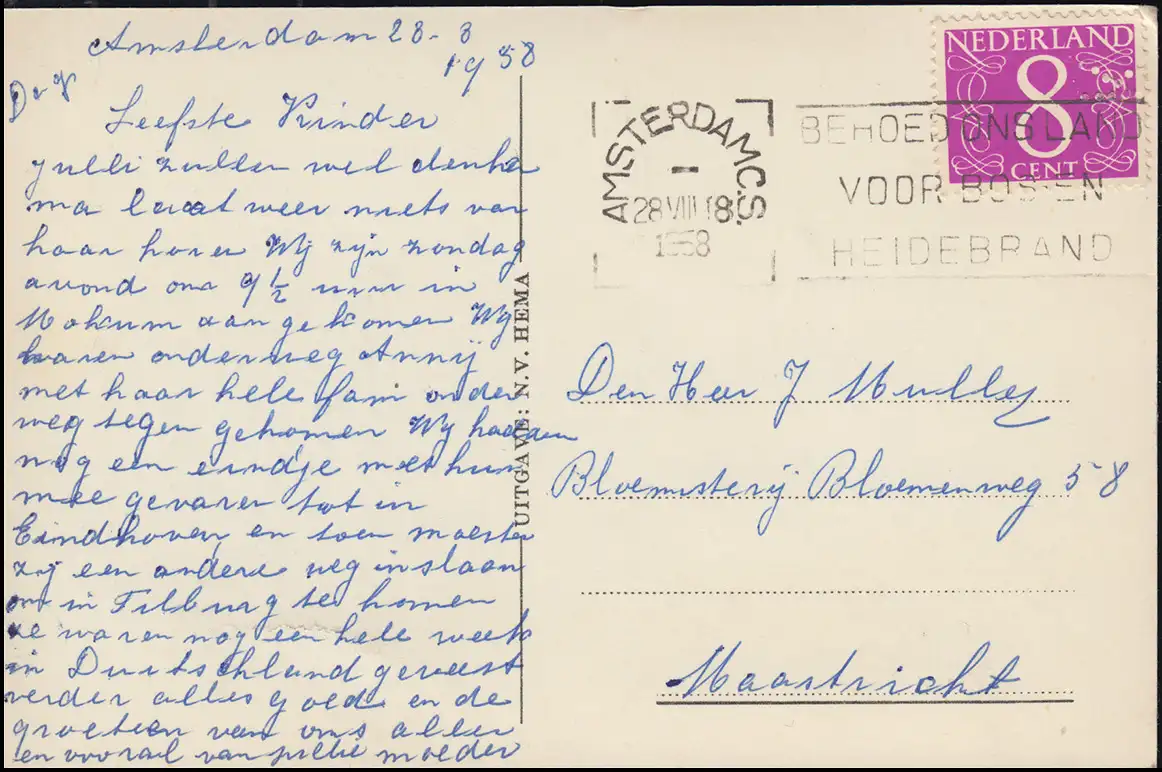 Amsterdam 28-8
1958
Leefste Kinder
julli zullen wel denke
ma laat weer niets van
haar hore Wij zijn zondag
avond om 9 1/2 uur in
Mokum aangekomen Wij
waren onderweg Annij
met haar hele fam onder
weg tegen gekomen Wij hadden
nog een eindje met hun
mee gevaren tot in
Eindhoven en toen moesten
zij een andere weg inslaan
om in Tilburg te komen
ze waren nog een hele week
in Duitschland geweest
verder alles goed en de
groeten van ons allen
en vooral van jullie moeder
UITGAVE: N.V. HEMA
NEDERLAND
8
CENT
AMSTERDAM C.S.
28 VIII 18
1958
BEHOED ONS LAND
VOOR BOS- EN
HEIDEBRAND
Den Heer J Mulley
Bloemisterij Bloemenweg 58
Maastricht